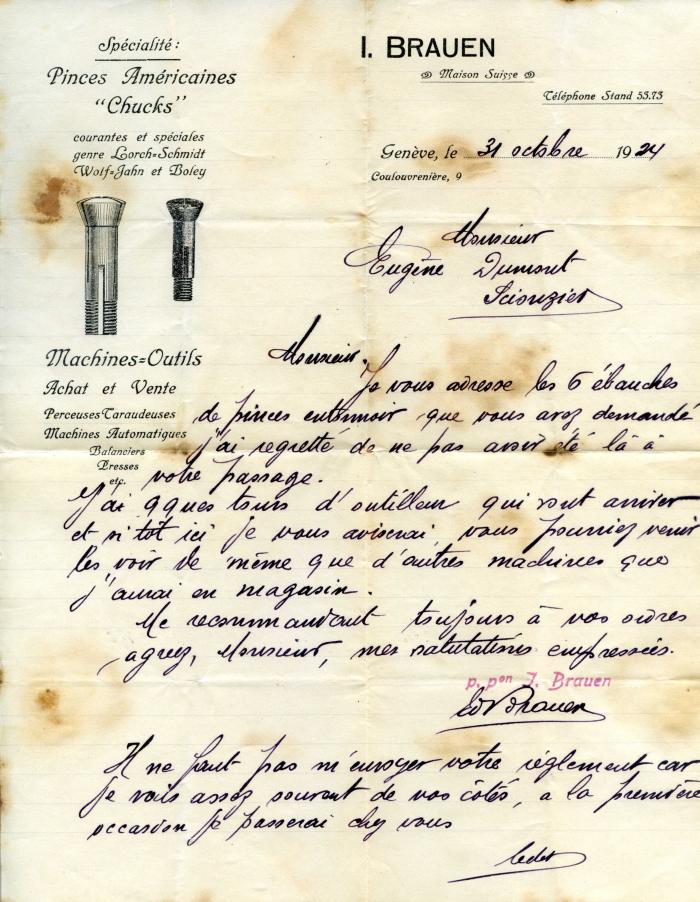 Spécialité:
Pinces Américaines
"Chucks"
courantes et spéciales
genre Lorch=Schmidt
Wolf=Jahn et Boley
I. BRAUEN
Maison Suisse
Téléphone Stand 53.73
Genève, le 31 octobre 1924
Coulouvrenière, 9
Monsieur
Eugène Dumont
Scionzier
Machines=Outils
Achat et Vente
Perceuses Taraudeuses
Machines Automatiques
Balanciers
Presses
etc.
Monsieur,
Je vous adresse les 6 ébauches
de pinces entonnoir que vous avez demandé
j'ai regretté de ne pas avoir été là à
votre passage.
J'ai qques tours d'outilleur qui vont arriver
et si tôt ici je vous aviserai, vous pourriez venir
les voir de même que d'autres machines que
j'aurai en magasin.
Me recommandant toujours à vos ordres
agreez, Monsieur, mes salutations empressées.
p. pon J. Brauen
Brauen
Il ne faut pas m'envoyer votre règlement car
je vais assez souvent de vos côtés, a la première
occasion je passerai chez vous